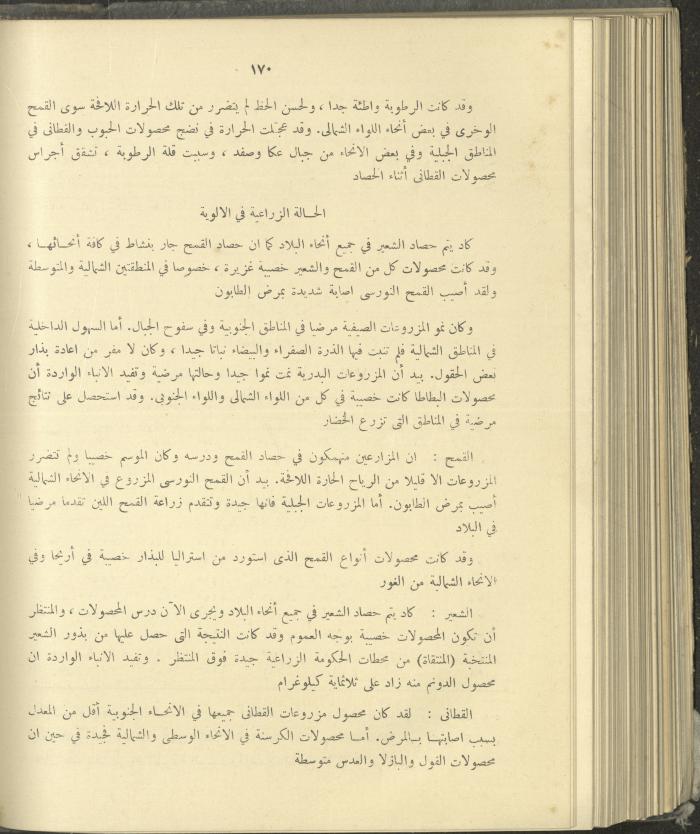 ١٧٠
وقد كانت الرطوبة واطئة جدا ، ولحسن الحظ لم يتضرر من تلك الحرارة اللافحة سوى القمح
الوخرى في بعض أنحاء اللواء الشمالى. وقد عجّلت الحرارة في نضج محصولات الحبوب والقطانى في
المناطق الجبلية وفي بعض الانحاء من جبال عكا وصفد ، وسببت قلة الرطوبة ، تشقق أجراس
محصولات القطانى أثناء الحصاد
الحالة الزراعية في الالوية
كاد يتم حصاد الشعير في جميع أنحاء البلاد كما ان حصاد القمح جار بنشاط في كافة أنحائها ،
وقد كانت محصولات كل من القمح والشعير خصيبة غزيرة ، خصوصا في المنطقتين الشمالية والمتوسطة
ولقد أصيب القمح النورسى اصابة شديدة بمرض الطابون
وكان نمو المزروعات الصيفية مرضيا في المناطق الجنوبية وفي سفوح الجبال. أما السهول الداخلية
في المناطق الشمالية فلم تنبت فيها الذرة الصفراء والبيضاء نباتا جيدا ، وكان لا مفر من اعادة بذار
بعض الحقول. بيد أن المزروعات البدرية نمت نموا جيدا وحالتها مرضية وتفيد الانباء الواردة أن
محصولات البطاطا كانت خصيبة في كل من اللواء الشمالى واللواء الجنوبى. وقد استحصل على نتائج
مرضية في المناطق التى تزرع الخضار
القمح : ان المزارعين منهمكون في حصاد القمح ودرسه وكان الموسم خصيبا ولم تتضرر
المزروعات الا قليلا من الرياح الحارة اللافحة. بيد أن القمح النورسى المزروع في الانحاء الشمالية
أصيب بمرض الطابون. أما المزروعات الجبلية فانها جيدة وتتقدم زراعة القمح اللين تقدما مرضيا
في البلاد
وقد كانت محصولات أنواع القمح الذى استورد من استراليا للبذار خصيبة في أريحا وفي
الانحاء الشمالية من الغور
الشعير : كاد يتم حصاد الشعير في جميع أنحاء البلاد ويجرى الآن درس المحصولات ، والمنتظر
أن تكون المحصولات خصيبة بوجه العموم وقد كانت النتيجة التى حصل عليها من بذور الشعير
المنتخبة (المنتقاة) من محطات الحكومة الزراعية جيدة فوق المنتظر . وتفيد الانباء الواردة ان
محصول الدونم منه زاد على ثلاثماية كيلوغرام
القطانى : لقد كان محصول مزروعات القطانى جميعها في الانحاء الجنوبية أقل من المعدل
بسبب اصابتها بالمرض. أما محصولات الكرسنة في الانحاء الوسطى والشمالية فجيدة في حين ان
محصولات الفول والبازلا والعدس متوسطة